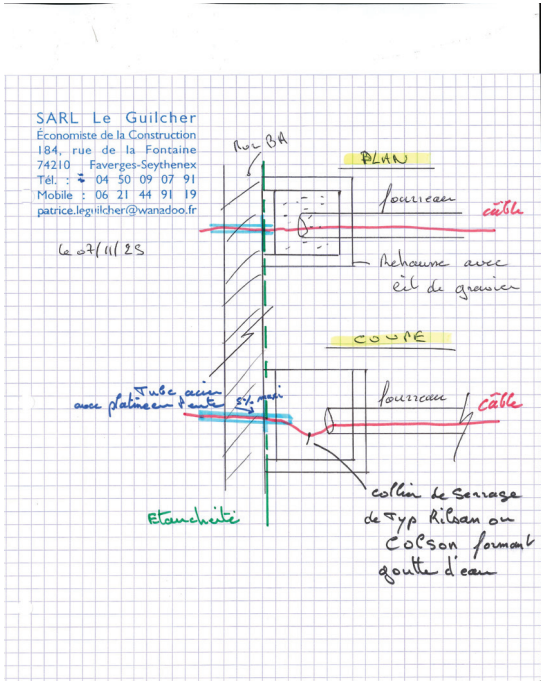 SARL Le Guilcher
Économiste de la Construction
184, rue de la Fontaine
74210 Faverges-Seythenex
Tél. : 04 50 09 07 91
Mobile : 06 21 44 91 19
patrice.leguilcher@wanadoo.fr
le 07/11/25
Mur BA
PLAN
fourreau
câble
Rehausse avec
lit de gravier
COUPE
Tube acier
avec platine en pente
5% maxi
fourreau
câble
Etanchéité
collier de serrage
de Typ Rilsan ou
COLSON formant
goutte d'eau